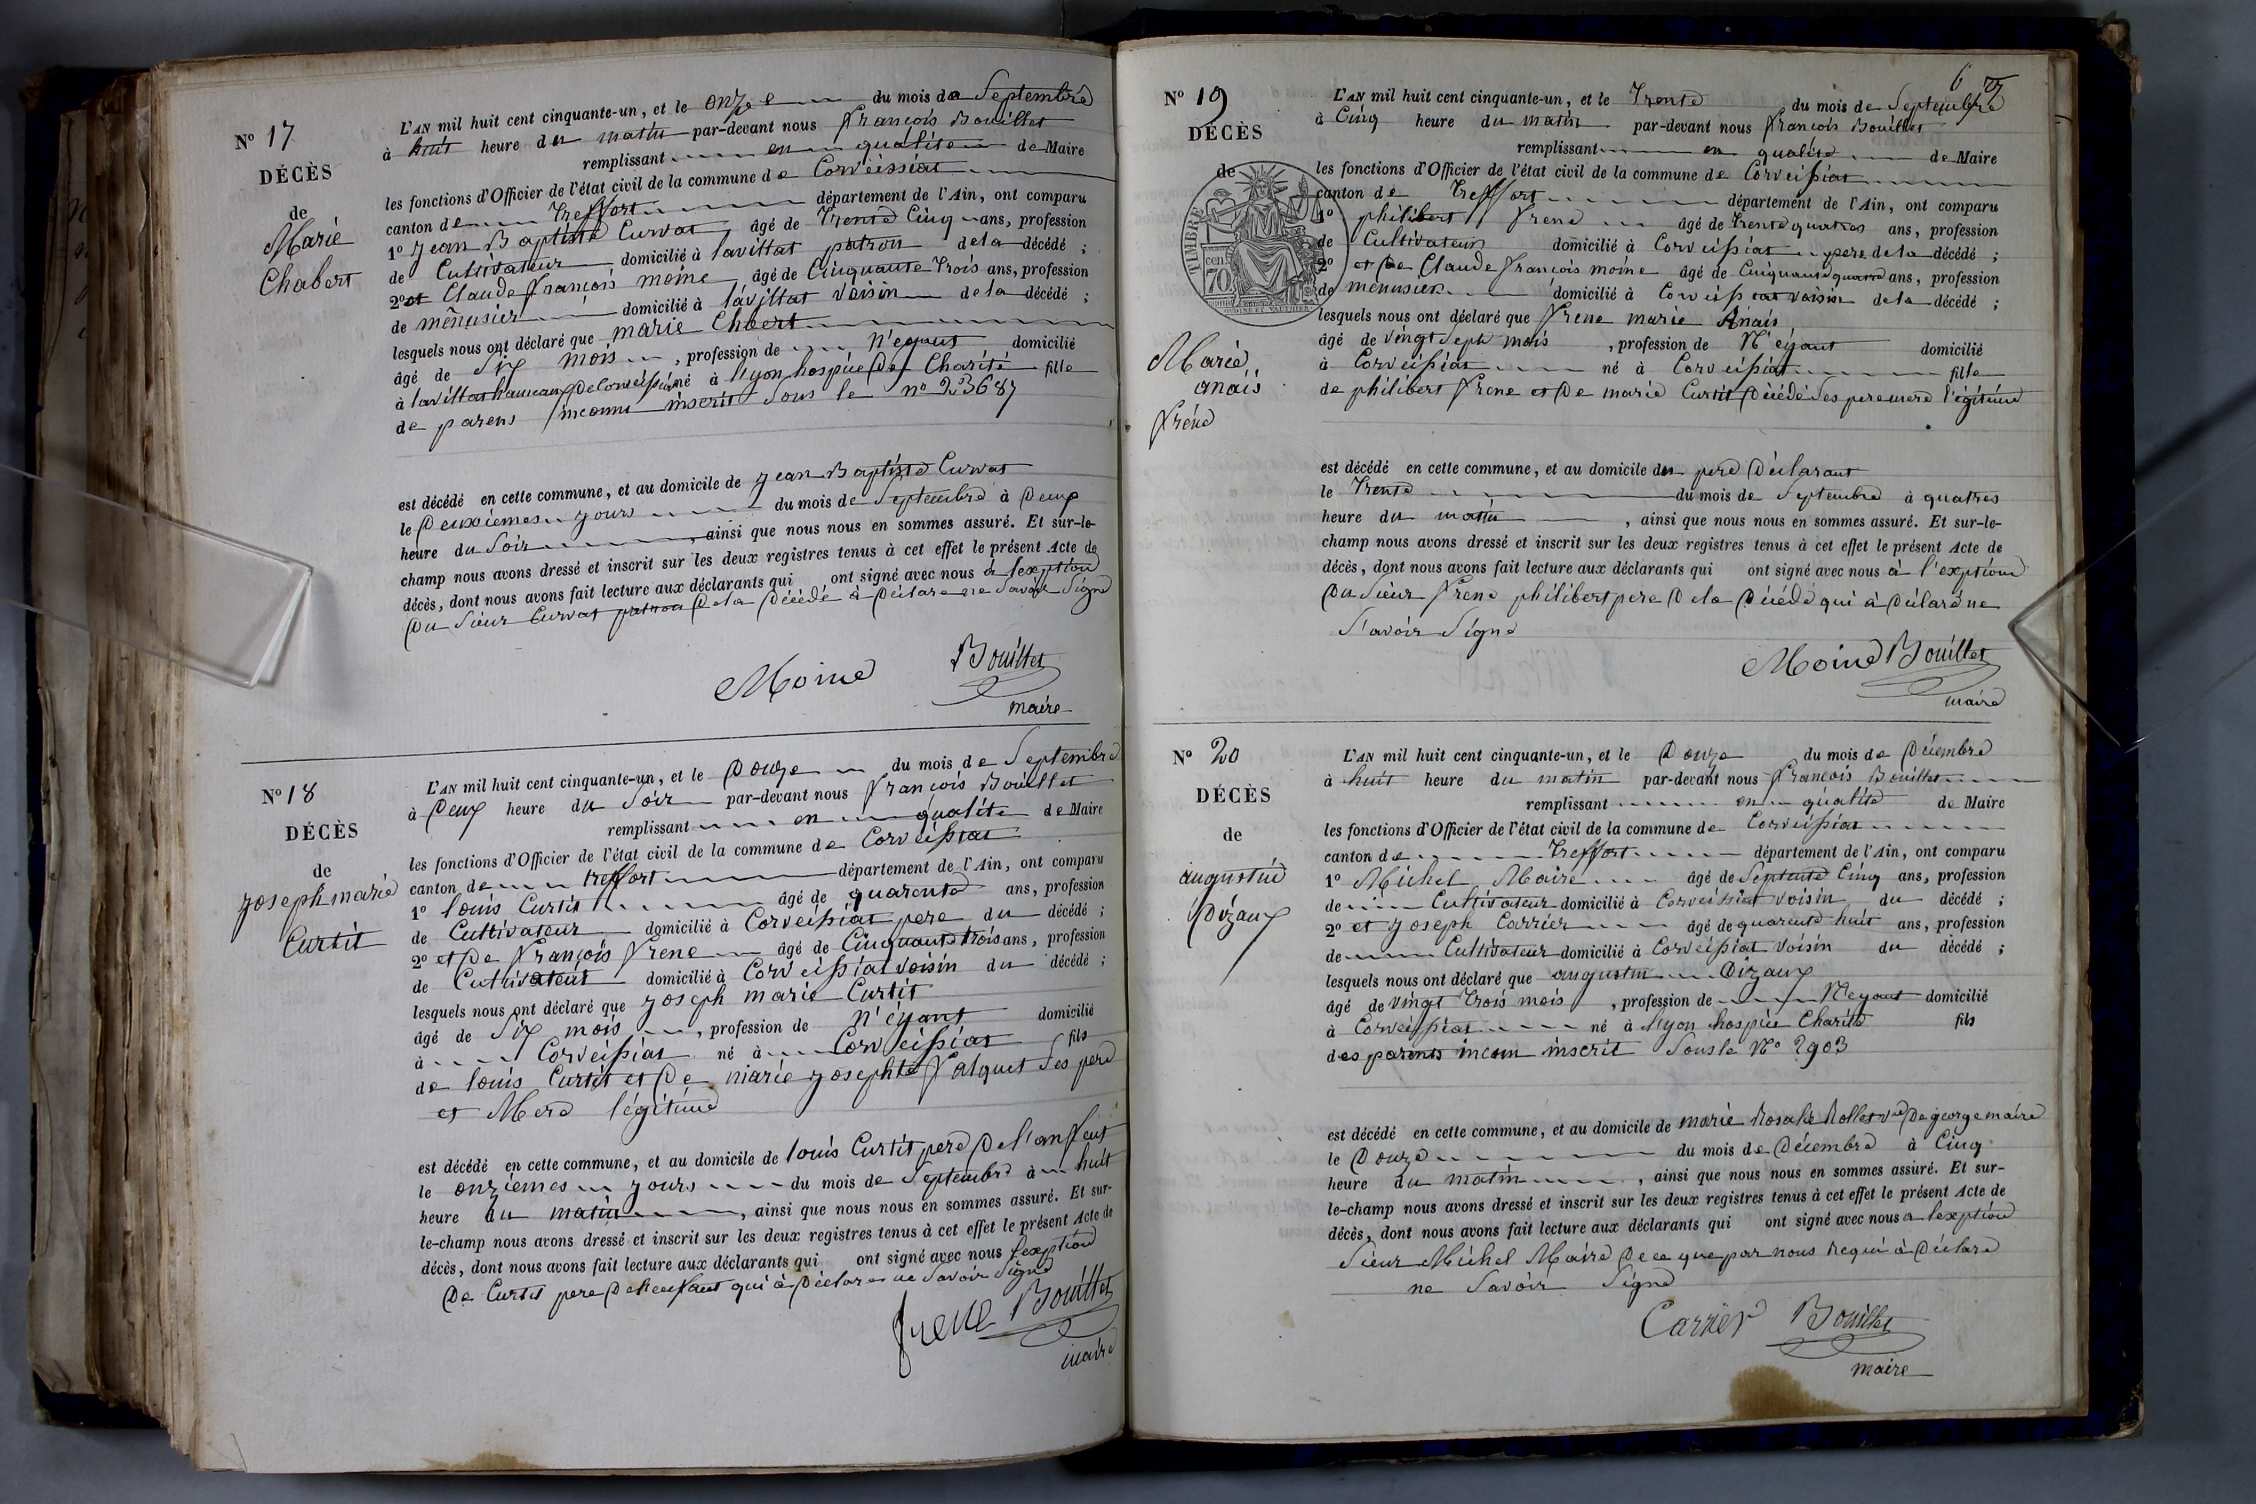 Nº 17
DÉCÈS
de
Marie
Chabert
L'AN mil huit cent cinquante-un, et le onze du mois de Septembre
à huit heure du matin par-devant nous François Bouillet
remplissant en qualité de Maire
les fonctions d'Officier de l'état civil de la commune de Corveissiat
canton de Treffort département de l'Ain, ont comparu
1º Jean Baptiste Curvat âgé de Trente Cinq ans, profession
de Cultivateur domicilié à lavillat patron de la décédé ;
2º et Claude François moine âgé de Cinquante Trois ans, profession
de menusier domicilié à lavillat voisin de la décédé ;
lesquels nous ont déclaré que marie Chbert
âgé de Six mois , profession de N'eyant domicilié
à lavillat hameaux De Corveissiat né à lyon hospice De Charité fille
de parens inconnu inscrit Sous le nº 23687
est décédé en cette commune, et au domicile de Jean Baptiste Curvat
le Deuxiemes jours du mois de Septembre à Deux
heure du Soir , ainsi que nous nous en sommes assuré. Et sur-le-
champ nous avons dressé et inscrit sur les deux registres tenus à cet effet le présent Acte de
décès, dont nous avons fait lecture aux déclarants qui ont signé avec nous à lexption
Du Sieur Curvat patron De la Décédé à Déclare ne Savoir Signe
Moine Bouillet
maire
Nº 18
DÉCÈS
de
Joseph marie
Curtit
L'AN mil huit cent cinquante-un, et le Douze du mois de Septembre
à Deux heure du Soir par-devant nous François Bouillet
remplissant en qualité de Maire
les fonctions d'Officier de l'état civil de la commune de Corveissiat
canton de treffort département de l'Ain, ont comparu
1º louis Curtit âgé de quarente ans, profession
de Cultivateur domicilié à Corveissiat pere du décédé ;
2º et De François Frene âgé de Cinquante trois ans, profession
de Cultivateur domicilié à Corveissiat voisin du décédé ;
lesquels nous ont déclaré que Joseph marie Curtit
âgé de Six mois , profession de n'eyant domicilié
à Corveissiat né à Corveissiat fils
de louis Curtit et De marie Josephte Falquet Ses pere
et Mere légitime
est décédé en cette commune, et au domicile de louis Curtit pere De l'anfent
le onziemes jours du mois de Septembre à huit
heure du matin , ainsi que nous nous en sommes assuré. Et sur-
le-champ nous avons dressé et inscrit sur les deux registres tenus à cet effet le présent Acte de
décès, dont nous avons fait lecture aux déclarants qui ont signé avec nous lexption
De Curtit pere De lenfant qui à Déclare ne Savoir Signe
frene Bouillet
maire
6
Nº 19
DÉCÈS
de
TIMBRE
70
Marie
anais
Frene
L'AN mil huit cent cinquante-un, et le Trente du mois de Septembre
à Cinq heure du matin par-devant nous François Bouillet
remplissant en qualité de Maire
les fonctions d'Officier de l'état civil de la commune de Corveissiat
canton de Treffort département de l'Ain, ont comparu
1º philibert Frene âgé de trente quatres ans, profession
de Cultivateur domicilié à Corveissiat pere de la décédé ;
2º et De Claude François moine âgé de Cinquante quatre ans, profession
de menusier domicilié à Corveissiat voisin de la décédé ;
lesquels nous ont déclaré que Frene marie Anais
âgé de vingt Sept mois , profession de N'eyant domicilié
à Corveissiat né à Corveissiat fille
de philibert Frene et De marie Curtit Décédé Ses pere mere légitime
est décédé en cette commune, et au domicile du pere Déclarant
le Trente du mois de Septembre à quatres
heure du matin , ainsi que nous nous en sommes assuré. Et sur-le-
champ nous avons dressé et inscrit sur les deux registres tenus à cet effet le présent Acte de
décès, dont nous avons fait lecture aux déclarants qui ont signé avec nous à l'exption
Du Sieur Frene philibert pere De la Décédé qui à Déclaré ne
Savoir Signe
Moine Bouillet
maire
Nº 20
DÉCÈS
de
augustin
Dizaux
L'AN mil huit cent cinquante-un, et le Douze du mois de Décembre
à huit heure du matin par-devant nous François Bouillet
remplissant en qualité de Maire
les fonctions d'Officier de l'état civil de la commune de Corveissiat
canton de Treffort département de l'Ain, ont comparu
1º Michel Maire âgé de Septente Cinq ans, profession
de Cultivateur domicilié à Corveissiat voisin du décédé ;
2º et Joseph Carrier âgé de quarente huit ans, profession
de Cultivateur domicilié à Corveissiat voisin du décédé ;
lesquels nous ont déclaré que augustin Dizaux
âgé de vingt Trois mois , profession de N'eyant domicilié
à Corveissiat né à lyon hospice Charité fils
des parents incoun inscrit Sous le Nº 2903
est décédé en cette commune, et au domicile de marie Rosalie Rollet Vve De george maire
le Douze du mois de Décembre à Cinq
heure du matin , ainsi que nous nous en sommes assuré. Et sur-
le-champ nous avons dressé et inscrit sur les deux registres tenus à cet effet le présent Acte de
décès, dont nous avons fait lecture aux déclarants qui ont signé avec nous a lexption
Sieur Michel Maire De ce que par nous requi à Déclare
ne Savoir Signe
Carrier Bouillet
maire